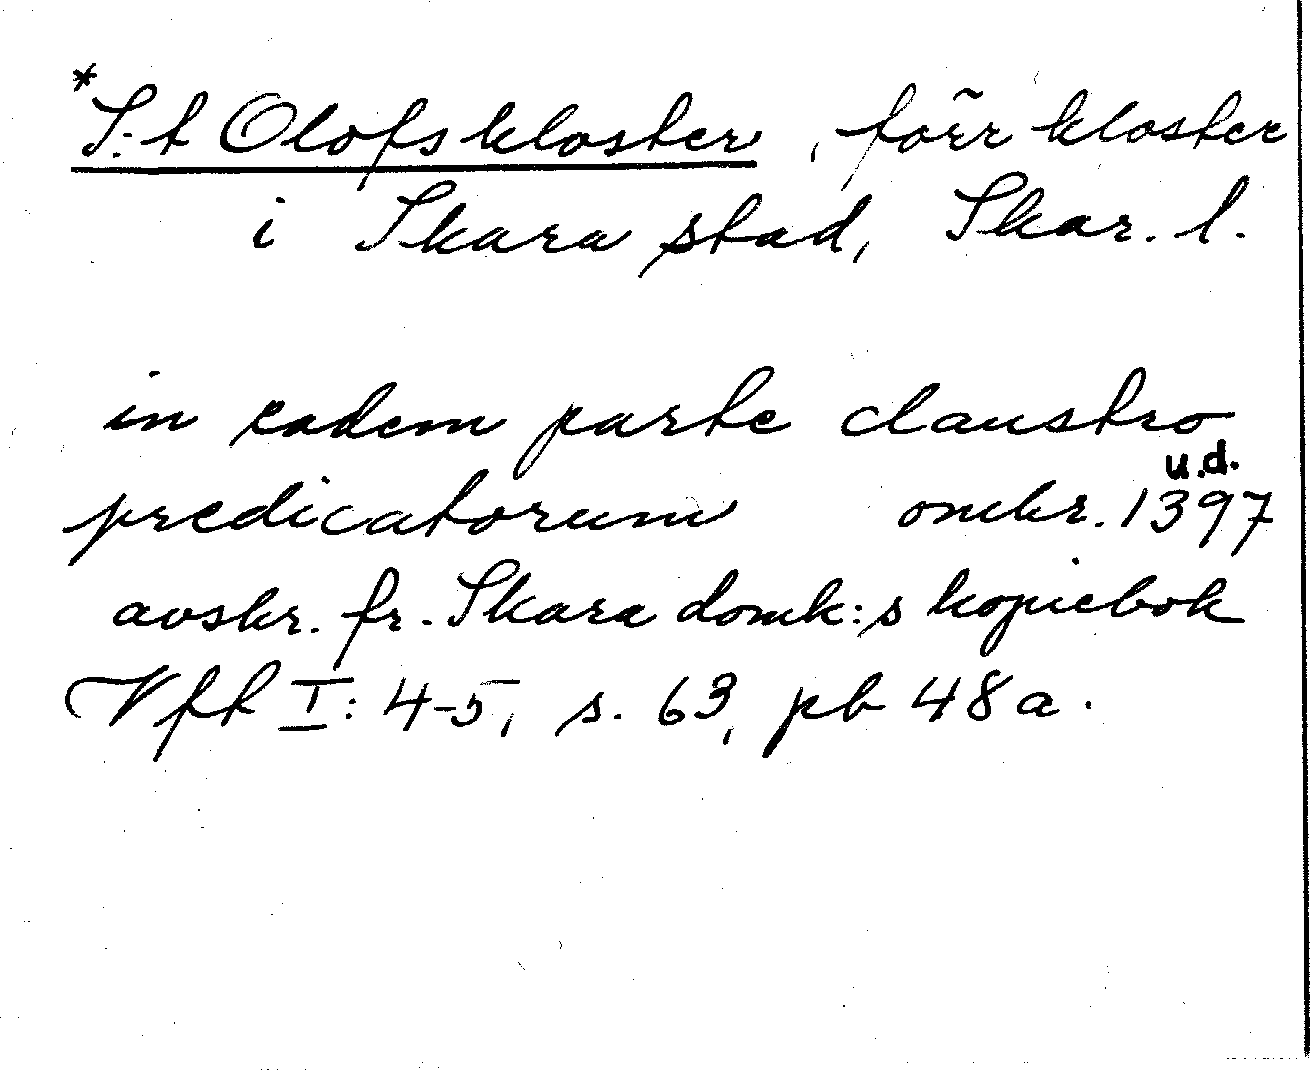 *S:t Olofs kloster, förr kloster
i Skara stad, Skar. l.
in eadem parte claustro
u.d.
predicatorum omkr. 1397
avskr. fr. Skara domk:s kopiebok
Vft I: 4-5, s. 63, pb 48a.